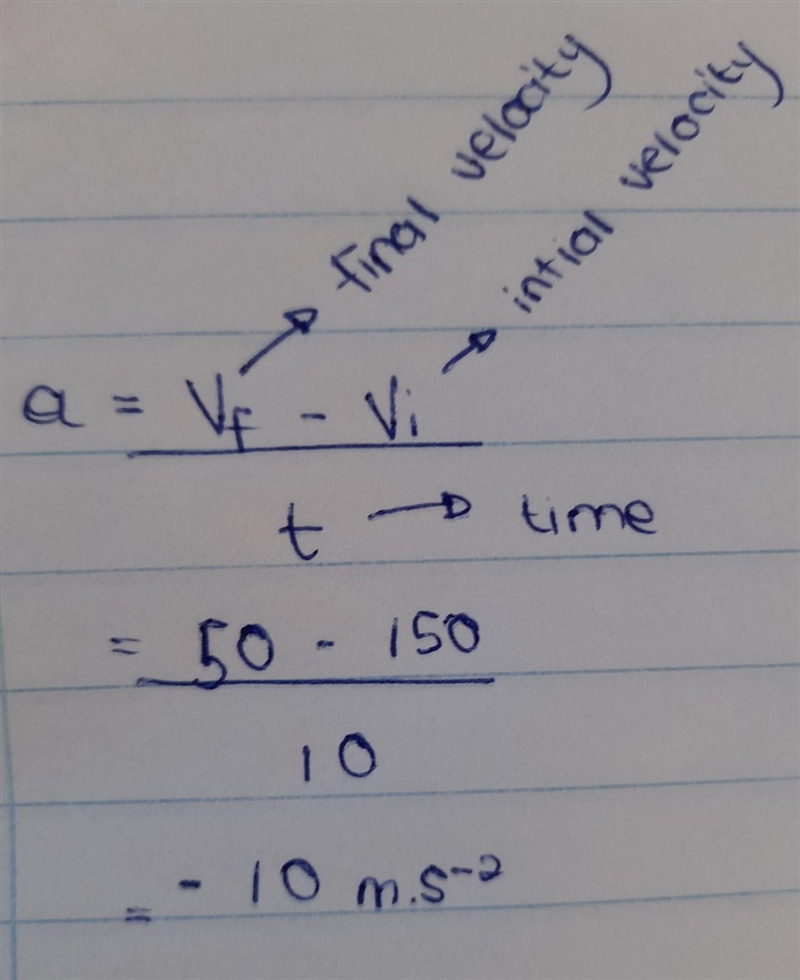 final velocity
intial velocity
a = Vf - Vi
t → time
= 50 - 150
10
= - 10 m.s⁻²